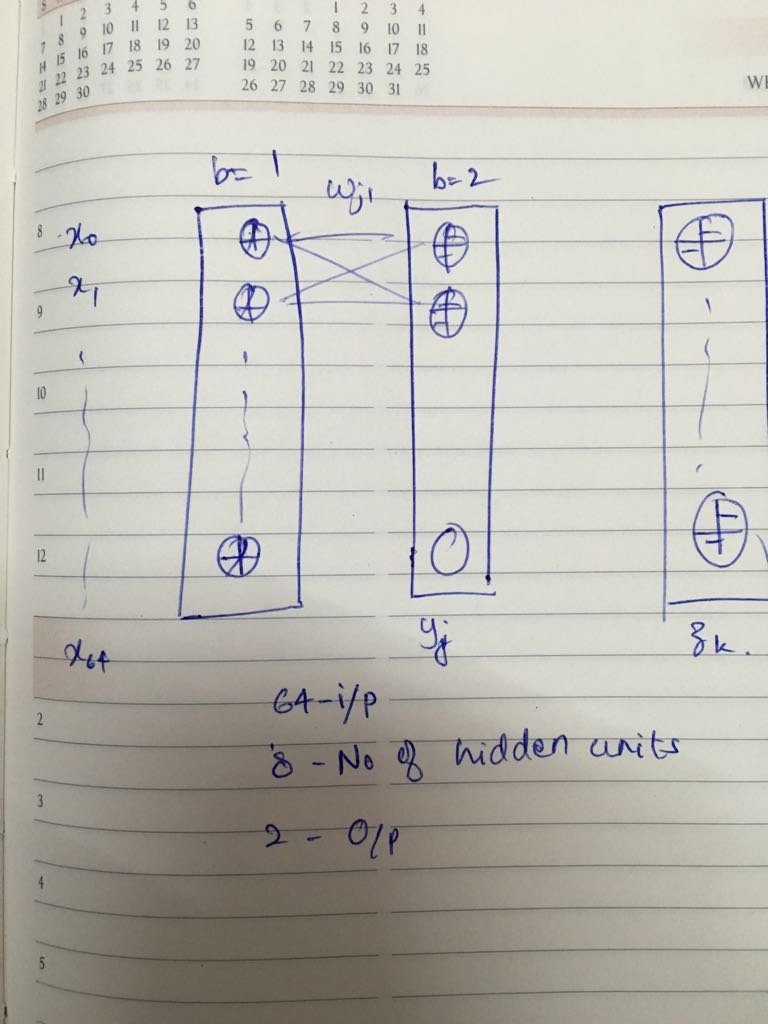 1 2 3 4 5 6
7 8 9 10 11 12 13
14 15 16 17 18 19 20
21 22 23 24 25 26 27
28 29 30
1 2 3 4
5 6 7 8 9 10 11
12 13 14 15 16 17 18
19 20 21 22 23 24 25
26 27 28 29 30 31
b= 1 wj1 b=2
8 x0
x1
9
10
11
12
yj zk.
x64
64-i/p
2
8 - No of hidden units
3
2 - O/p
4
5